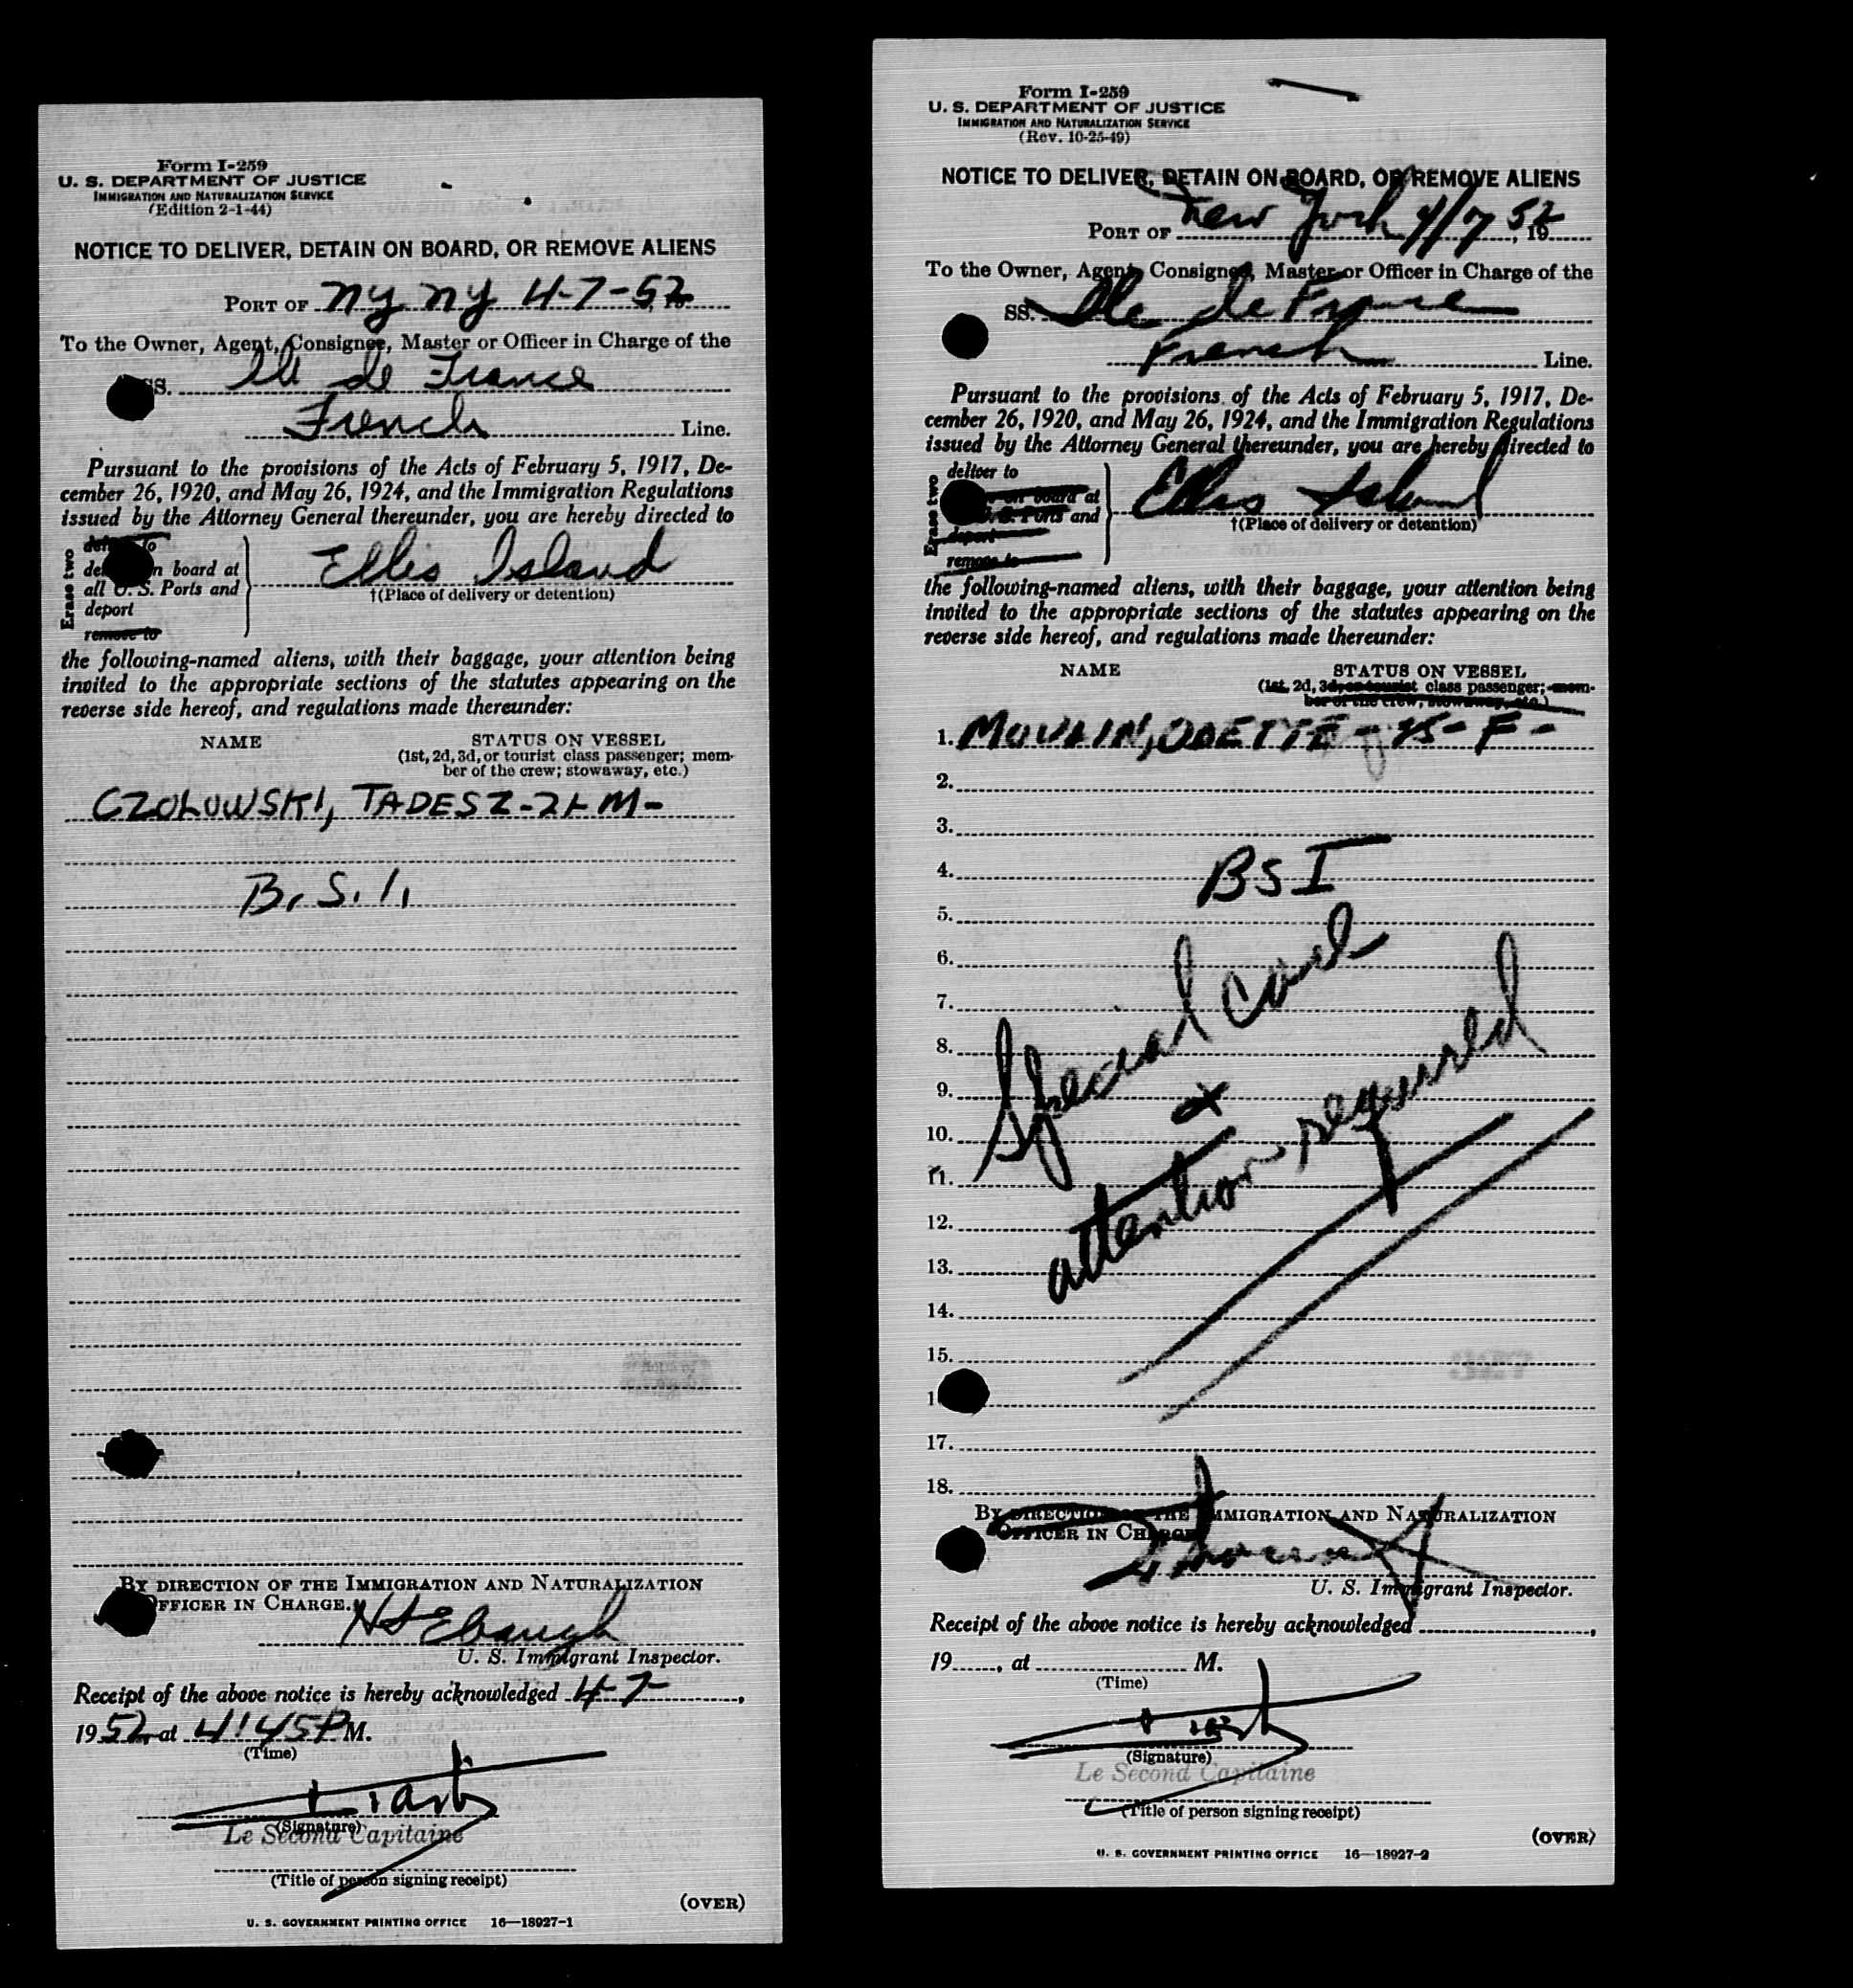 Form I-259
U. S. DEPARTMENT OF JUSTICE
IMMIGRATION AND NATURALIZATION SERVICE
(Edition 2-1-44)
NOTICE TO DELIVER, DETAIN ON BOARD, OR REMOVE ALIENS
PORT OF NY NY 4-7-52
To the Owner, Agent, Consignee, Master or Officer in Charge of the
SS. Ile de France
French Line.
Pursuant to the provisions of the Acts of February 5, 1917, De-
cember 26, 1920, and May 26, 1924, and the Immigration Regulations
issued by the Attorney General thereunder, you are hereby directed to
Erase two
n board at
all U. S. Ports and
deport
remove to
Ellis Island
†(Place of delivery or detention)
the following-named aliens, with their baggage, your attention being
invited to the appropriate sections of the statutes appearing on the
reverse side hereof, and regulations made thereunder:
NAME STATUS ON VESSEL
(1st, 2d, 3d, or tourist class passenger; mem-
ber of the crew; stowaway, etc.)
CZOLOWSKI, TADESZ - M -
B.S.I.
BY DIRECTION OF THE IMMIGRATION AND NATURALIZATION
OFFICER IN CHARGE.
Ebaugh
U. S. Immigrant Inspector.
Receipt of the above notice is hereby acknowledged 4-7-,
1952, at 4:45 P M.
(Time)
(Signature)
Le Second Capitaine
(Title of person signing receipt)
(OVER)
U. S. GOVERNMENT PRINTING OFFICE 16—18927-1
Form I-259
U. S. DEPARTMENT OF JUSTICE
IMMIGRATION AND NATURALIZATION SERVICE
(Rev. 10-25-49)
NOTICE TO DELIVER, DETAIN ON BOARD, OR REMOVE ALIENS
PORT OF New York 4/7, 1952
To the Owner, Agent, Consignee, Master or Officer in Charge of the
SS. Ile de France
French Line.
Pursuant to the provisions of the Acts of February 5, 1917, De-
cember 26, 1920, and May 26, 1924, and the Immigration Regulations
issued by the Attorney General thereunder, you are hereby directed to
Erase two
deliver to
on board at
U. S. Ports and
deport
remove to
Ellis Island
†(Place of delivery or detention)
the following-named aliens, with their baggage, your attention being
invited to the appropriate sections of the statutes appearing on the
reverse side hereof, and regulations made thereunder:
NAME STATUS ON VESSEL
(1st, 2d, 3d, or tourist class passenger; mem-
ber of the crew, stowaway, etc.)
1. MOULIN, ODETTE - F -
2.
3.
4. BSI
5.
6.
7.
8.
9.
10.
11.
12.
13.
14.
15.
17.
18.
Special Care
+
attention required
BY DIRECTION OF THE IMMIGRATION AND NATURALIZATION
OFFICER IN CHARGE
U. S. Immigrant Inspector.
Receipt of the above notice is hereby acknowledged ,
19 , at M.
(Time)
(Signature)
Le Second Capitaine
(Title of person signing receipt)
(OVER)
U. S. GOVERNMENT PRINTING OFFICE 16—18927-2